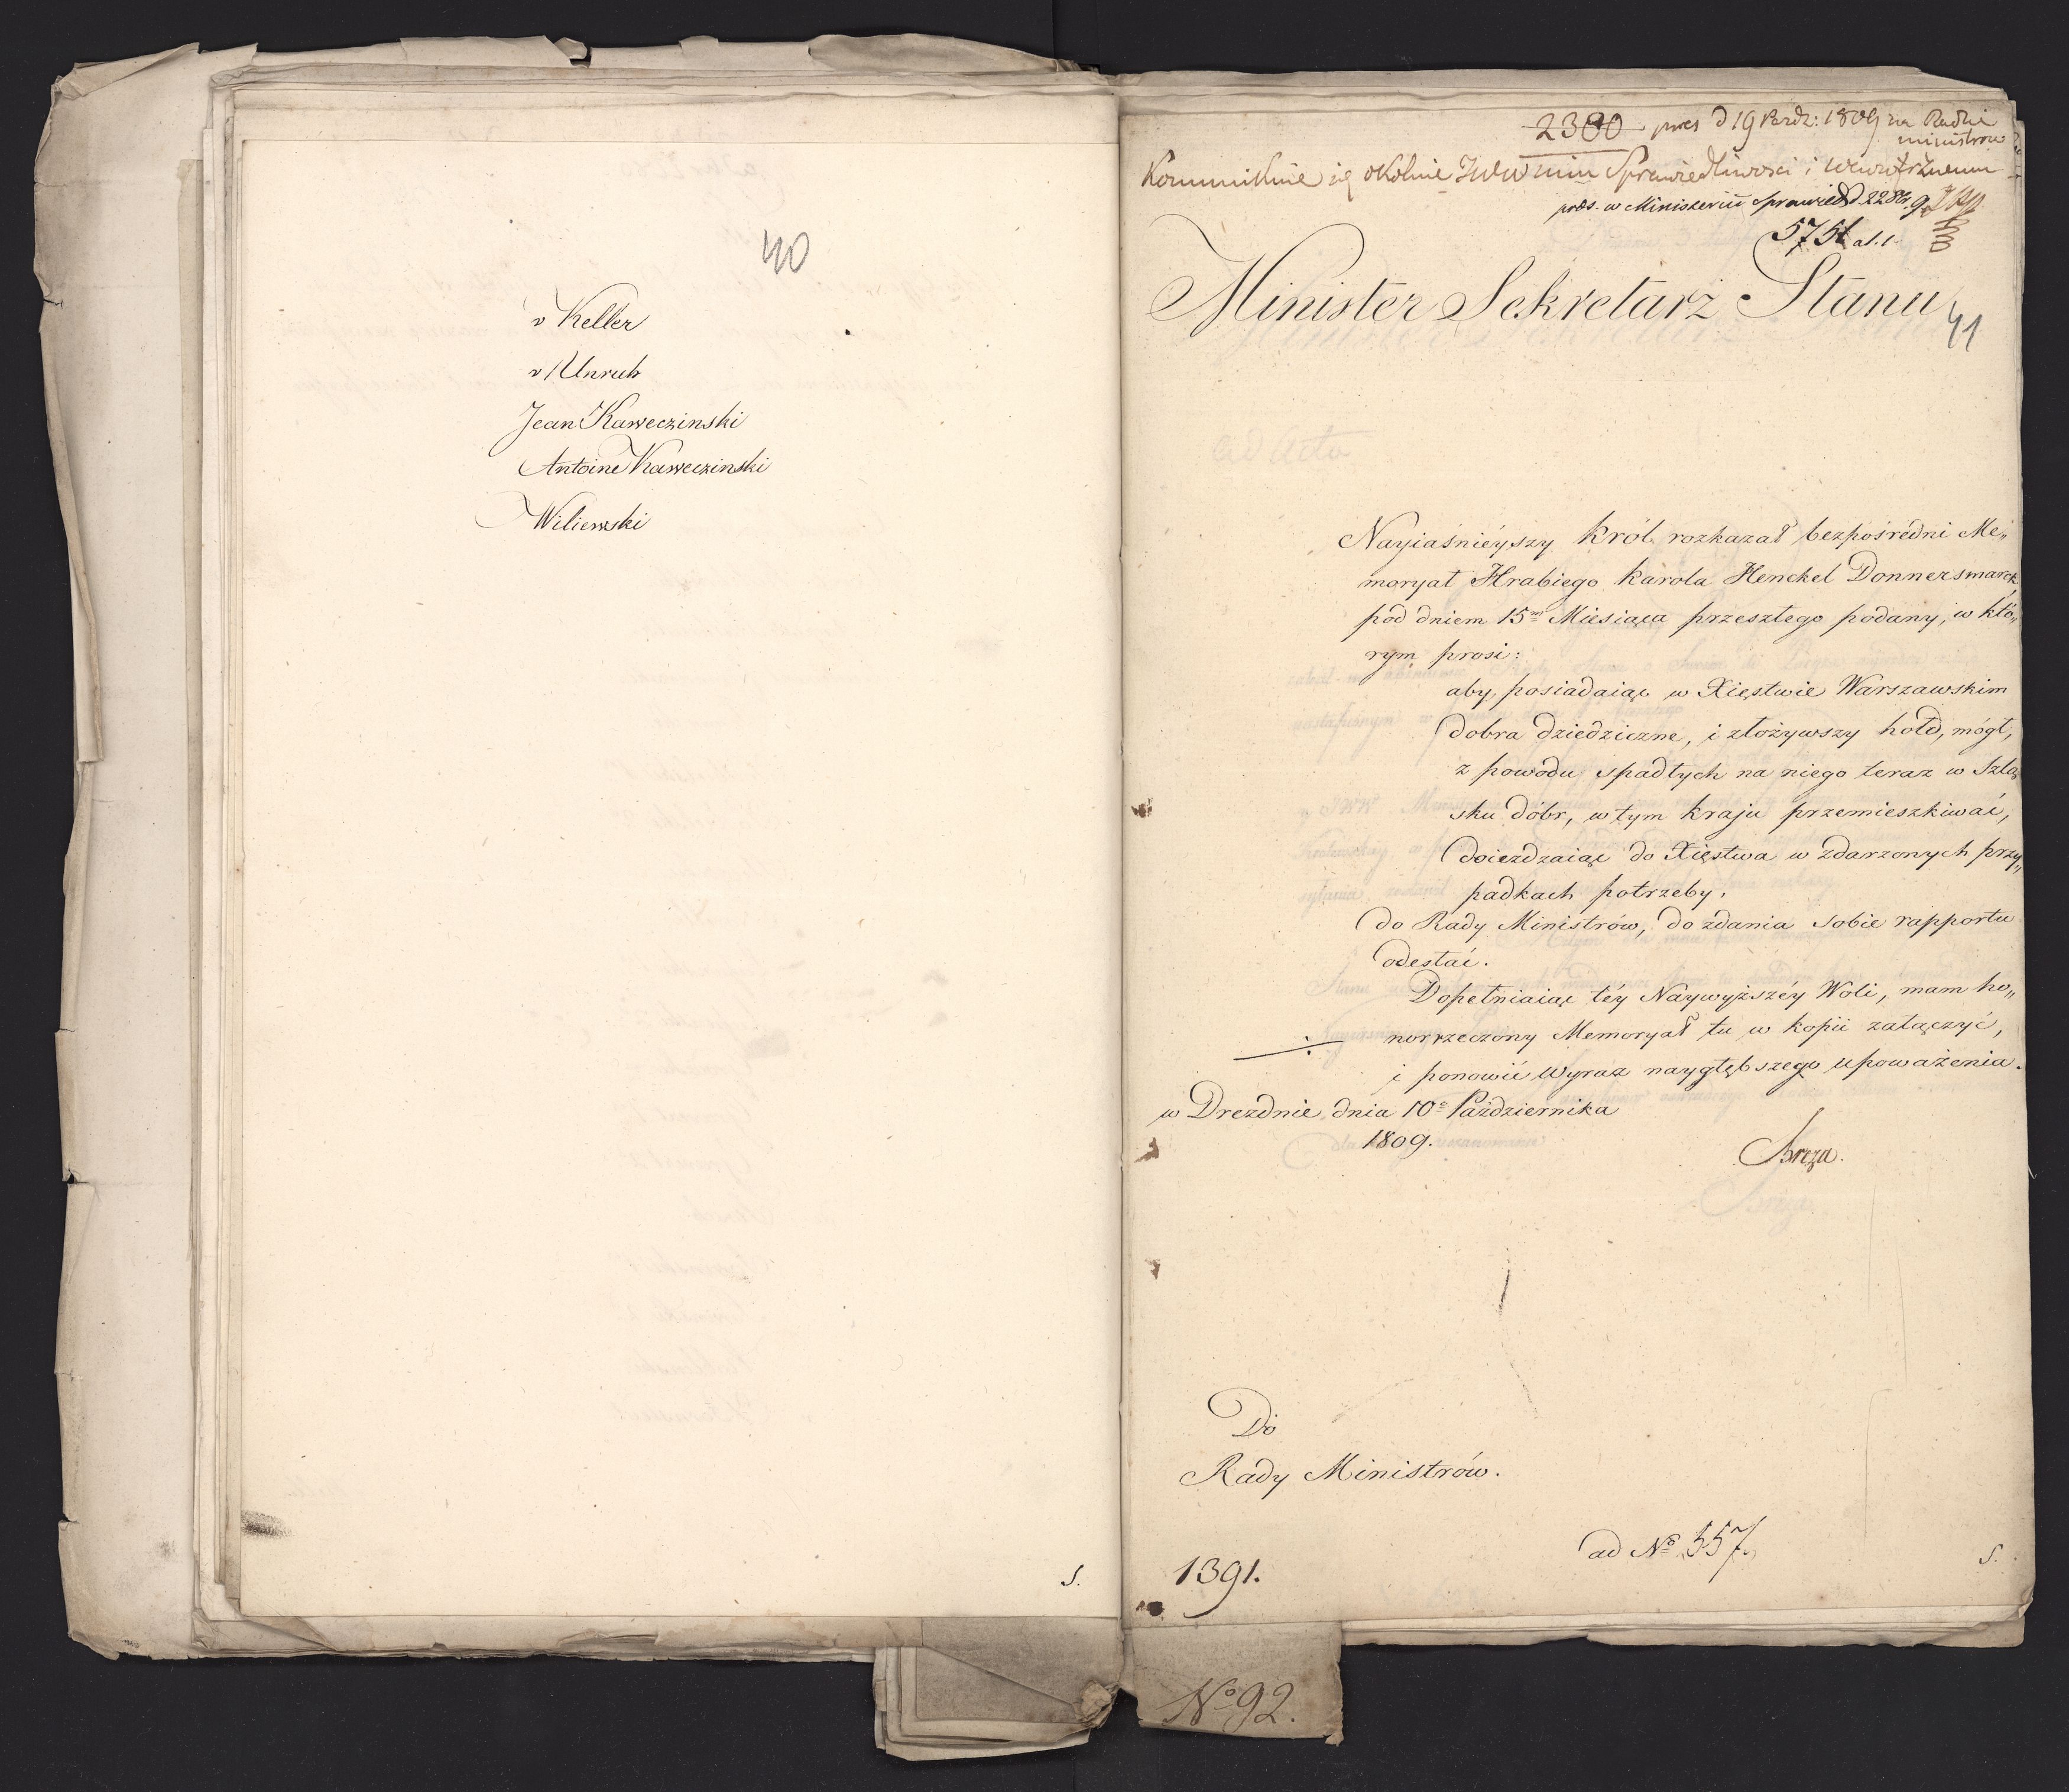 40
v Keller
v Unruh
Jean Kaweczinski
Antoine Kaweczinski
Wiliewski
S.
2380 pres d 19 Paźdz: 1809 na Radzie
ministrow
Kommunikuie się okolnie JWW min Sprawiedliwosci i Wewnętrznemu
prds. w Ministerii Sprawied d. 22 8br. 9
5751 al.1.
Minister Sekretarz Stanu
41
ad Acta
Nayiaśnieyszy Król rozkazał bezpośredni Me„
moryał Hrabiego Karola Henckel Donnersmarck
pod dniem 15m Miesiąca przeszłego podany, w któ„
rym prosi:
aby, posiadaiąc w Xięstwie Warszawskim
dobra dziedziczne, i złożywszy hołd, mógł,
z powodu spadłych na niego teraz w Szlą
sku dóbr, w tym kraju przemieszkiwać,
doieżdzaiąc do Xięstwa w zdarzonych przy„
padkach potrzeby,
do Rady Ministrów, do zdania sobie rapportu
odesłać.
Dopełniaiąc téy Naywyższéy Woli, mam ho„
nor rzeczony Memoryał tu w kopii załączyć,
i ponowić wyraz naygłębszego upoważenia.
w Dreznie, dnia 10o Października
1809.
Breza.
Do
Rady Ministrów.
ad No 557.
1391.
S.
No 92.